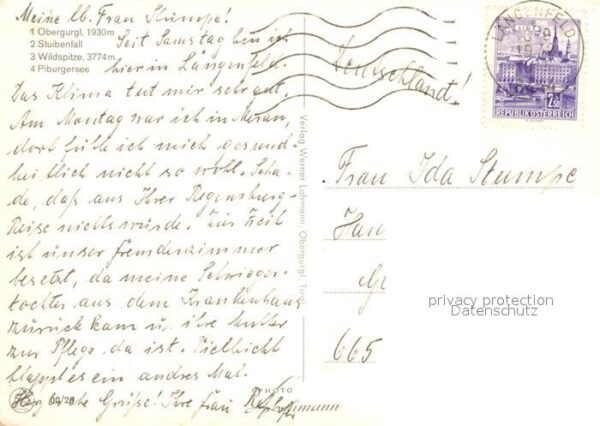 Meine lb. Frau Stumpe!
1 Obergurgl, 1930m
2 Stuibenfall
3 Wildspitze, 3774m
4 Piburgersee
Seit Samstag bin ich
hier in Längenfeld.
Das Klima tut mir sehr gut.
Am Montag war ich in Meran,
dort fühle ich mich gesund-
heitlich nicht so wohl. Scha-
de, daß aus Ihrer Regensburg-
Reise nichts wurde. Zur Zeit
ist unser Fremdenzimmer
besetzt, da meine Schwieger-
tochter aus dem Krankenhaus
zurück kam u. ihre Mutter
zur Pflege da ist. Vielleicht
klappt es ein andres Mal.
Herzliche Grüße! Ihre Frau
60/28
PHOTO
Lohmann
Verlag Werner Lohmann, Obergurgl, Tirol
LÄNGENFELD
2.50
REPUBLIK ÖSTERREICH
Deutschland!
Frau Ida Stumpe
Hau
G
665
privacy protection
Datenschutz